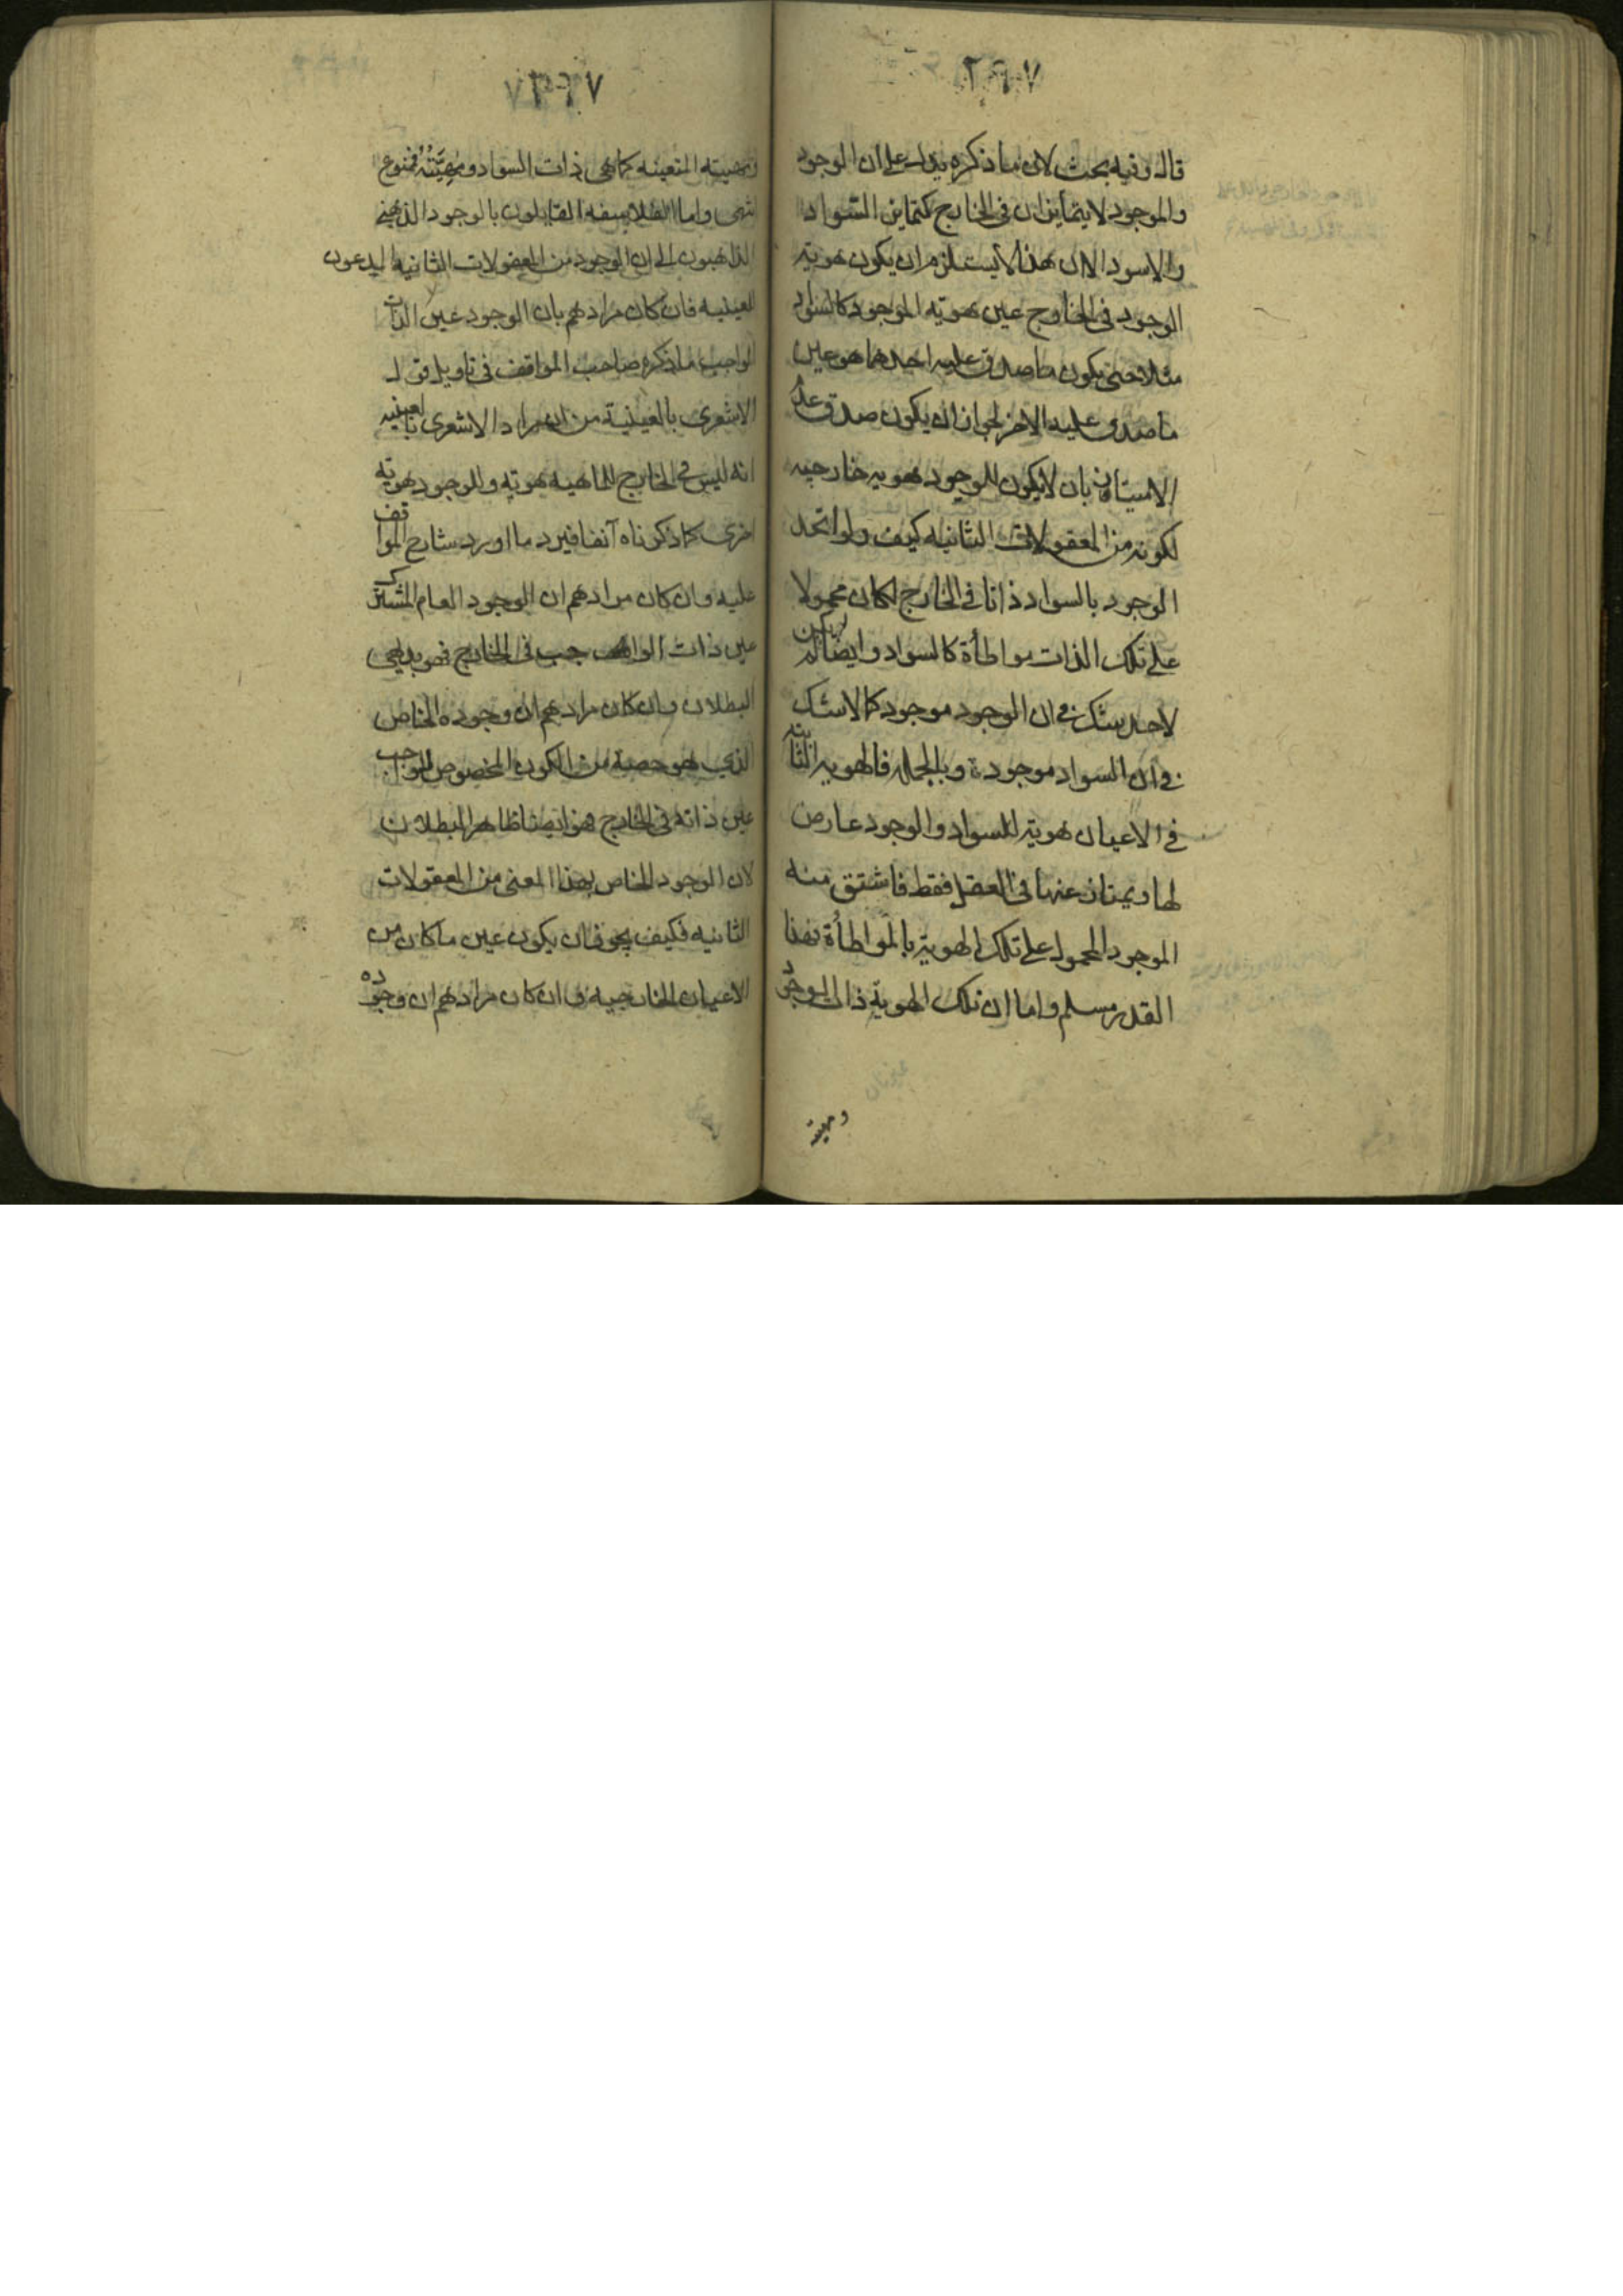 ٢٩٧
قال وفيه بحث لان ما ذكره يدل على ان الوجود
والموجود لا يتمايزان فى الخارج كتمايز السواد
والاسود الا ان هذا لا يستلزم ان يكون هوية
الوجود فى الخارج عين هوية الموجود كالسواد
مثلا حتى يكون ما صدق عليه احدهما هو عين
ما صدق عليه الاخر لجواز ان يكون صدق عدم
الامتياز بان لا يكون للوجود هويه خارجيه
لكونه من المعقولات الثانيه كيف ولو اتحد
الوجود بالسواد ذاتا فى الخارج لكان محمولا
على تلك الذات مواطأة كالسواد وايضا لم يكن
لاحد شك فى ان الوجود موجود كما لا شك
فى ان السواد موجودة وبالجملة فالهوية الثابتة
فى الاعيان هوية للسواد والوجود عارض
لها ويمتاز عنها فى العقل فقط فاشتق منه
الموجود المحمول على تلك الهوية بالمواطأة فهذا
القدر مسلم واما ان تلك الهوية ذات الوجود
ومهيته
وهيته المتعينه كما هى ذات السواد ومهيَّتُهُ فممنوع
انتهى واما الفلاسفه القايلون بالوجود الذهنى
الذاهبون الى ان الوجود من المعقولات الثانيه اليدعون
العينيه فان كان مرادهم بان الوجود عين الذات
الواجب ما ذكره صاحب المواقف فى تاويل قول
الاشعرى بالعينية من ان مراد الاشعرى بالعينيه
انه ليس فى الخارج للماهيه هوية وللوجود هوية
اخرى كما ذكرناه آنفا فيرد ما اورد شارح المواقف
عليه وان كان مرادهم ان الوجود العام المشترك
عين ذات الواجب فى الخارج فهو بديهى
البطلان وان كان مرادهم ان وجوده الخاص
الذى هو حصة من الكون المخصوص للواجب
عين ذاته فى الخارج فهو ايضا ظاهر البطلان
لان الوجود الخاص بهذا المعنى من المعقولات
الثانيه فكيف يجوز ان يكون عين ما كان من
الاعيان الخارجيه وان كان مرادهم ان وجوده